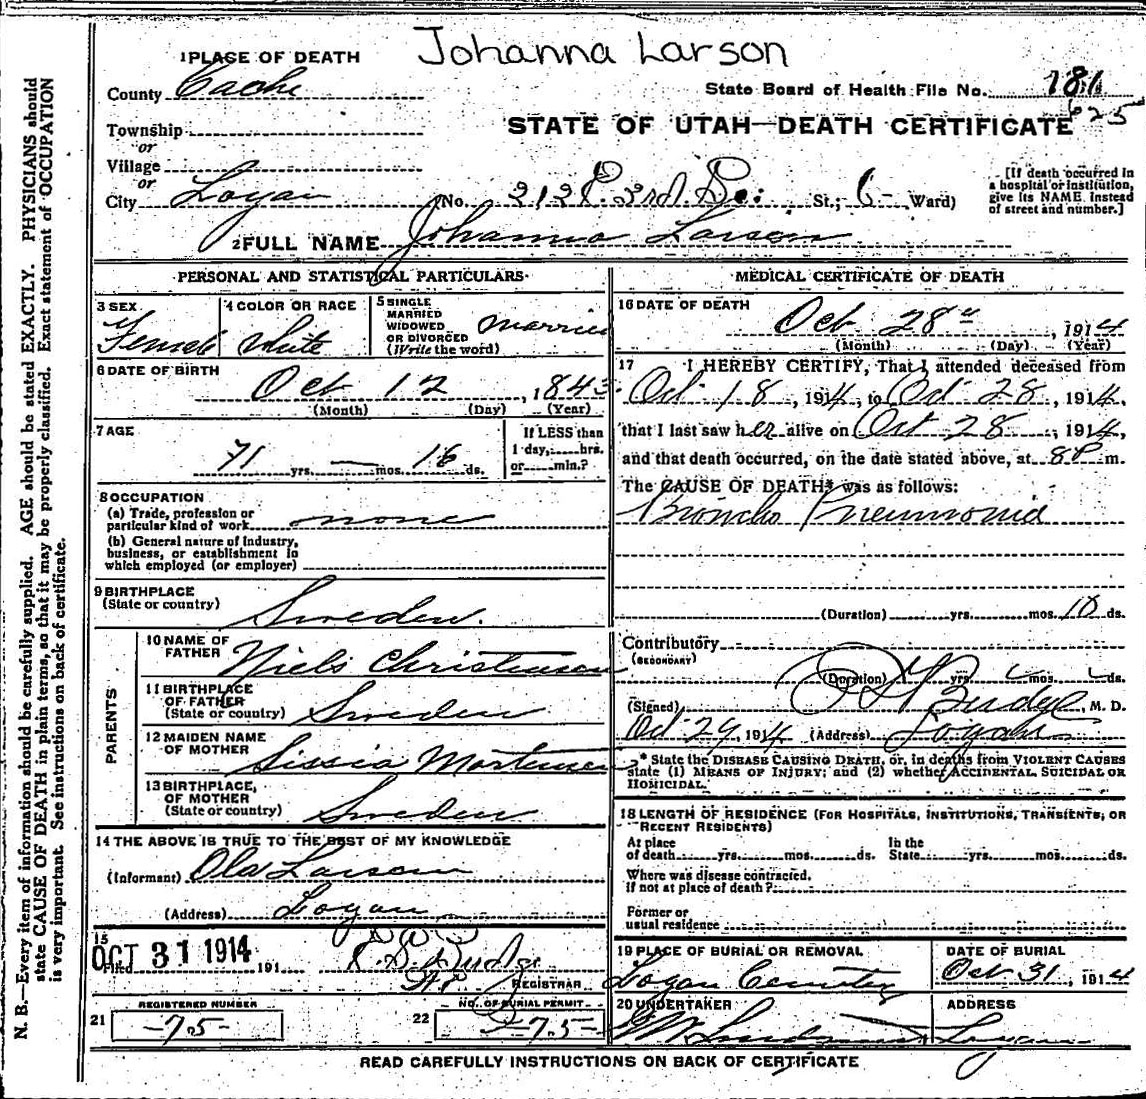 Johanna Larson
1 PLACE OF DEATH
County Cache
State Board of Health File No. 181
625
Township
or
Village
or
STATE OF UTAH—DEATH CERTIFICATE
City Logan (No. 212 E. 3rd So. St.; 6 Ward)
[If death occurred in
a hospital or institution,
give its NAME instead
of street and number.]
2 FULL NAME Johanna Larson
PERSONAL AND STATISTICAL PARTICULARS
3 SEX
Female
4 COLOR OR RACE
White
5 SINGLE
MARRIED
WIDOWED
OR DIVORCED
(Write the word)
Married
6 DATE OF BIRTH
Oct 12, 1843
(Month) (Day) (Year)
7 AGE
71 yrs. — mos. 16 ds.
If LESS than
1 day, hrs.
or min.?
8 OCCUPATION
(a) Trade, profession or
particular kind of work none
(b) General nature of industry,
business, or establishment in
which employed (or employer)
9 BIRTHPLACE
(State or country) Sweden.
PARENTS
10 NAME OF
FATHER Niels Christensen
11 BIRTHPLACE
OF FATHER
(State or country) Sweden
12 MAIDEN NAME
OF MOTHER Sissia Mortensen
13 BIRTHPLACE,
OF MOTHER
(State or country) Sweden
14 THE ABOVE IS TRUE TO THE BEST OF MY KNOWLEDGE
(Informant) Ola Larson
(Address) Logan
15
OCT 31 1914
Filed 191
REGISTRAR
REGISTERED NUMBER
21 -75-
NO. OF BURIAL PERMIT
22 -75-
MEDICAL CERTIFICATE OF DEATH
16 DATE OF DEATH
Oct 28", 1914
(Month) (Day) (Year)
17 I HEREBY CERTIFY, That I attended deceased from
Oct 18, 1914, to Oct 28, 1914,
that I last saw her alive on Oct 28, 1914,
and that death occurred, on the date stated above, at 8 P m.
The CAUSE OF DEATH* was as follows:
Broncho Pneumonia
(Duration) yrs. mos. 10 ds.
Contributory
(SECONDARY)
(Duration) yrs. mos. ds.
(Signed) Budge, M. D.
Oct 29, 1914 (Address) Logan
* State the DISEASE CAUSING DEATH, or, in deaths from VIOLENT CAUSES
state (1) MEANS OF INJURY; and (2) whether ACCIDENTAL, SUICIDAL OR
HOMICIDAL.
18 LENGTH OF RESIDENCE (FOR HOSPITALS, INSTITUTIONS, TRANSIENTS, OR
RECENT RESIDENTS)
At place
of death yrs. mos. ds.
In the
State yrs. mos. ds.
Where was disease contracted,
if not at place of death?
Former or
usual residence
19 PLACE OF BURIAL OR REMOVAL
Logan Cemetery
DATE OF BURIAL
Oct 31, 1914
20 UNDERTAKER
ADDRESS
Logan
READ CAREFULLY INSTRUCTIONS ON BACK OF CERTIFICATE
N. B.—Every item of information should be carefully supplied. AGE should be stated EXACTLY. PHYSICIANS should
state CAUSE OF DEATH in plain terms, so that it may be properly classified. Exact statement of OCCUPATION
is very important. See instructions on back of certificate.